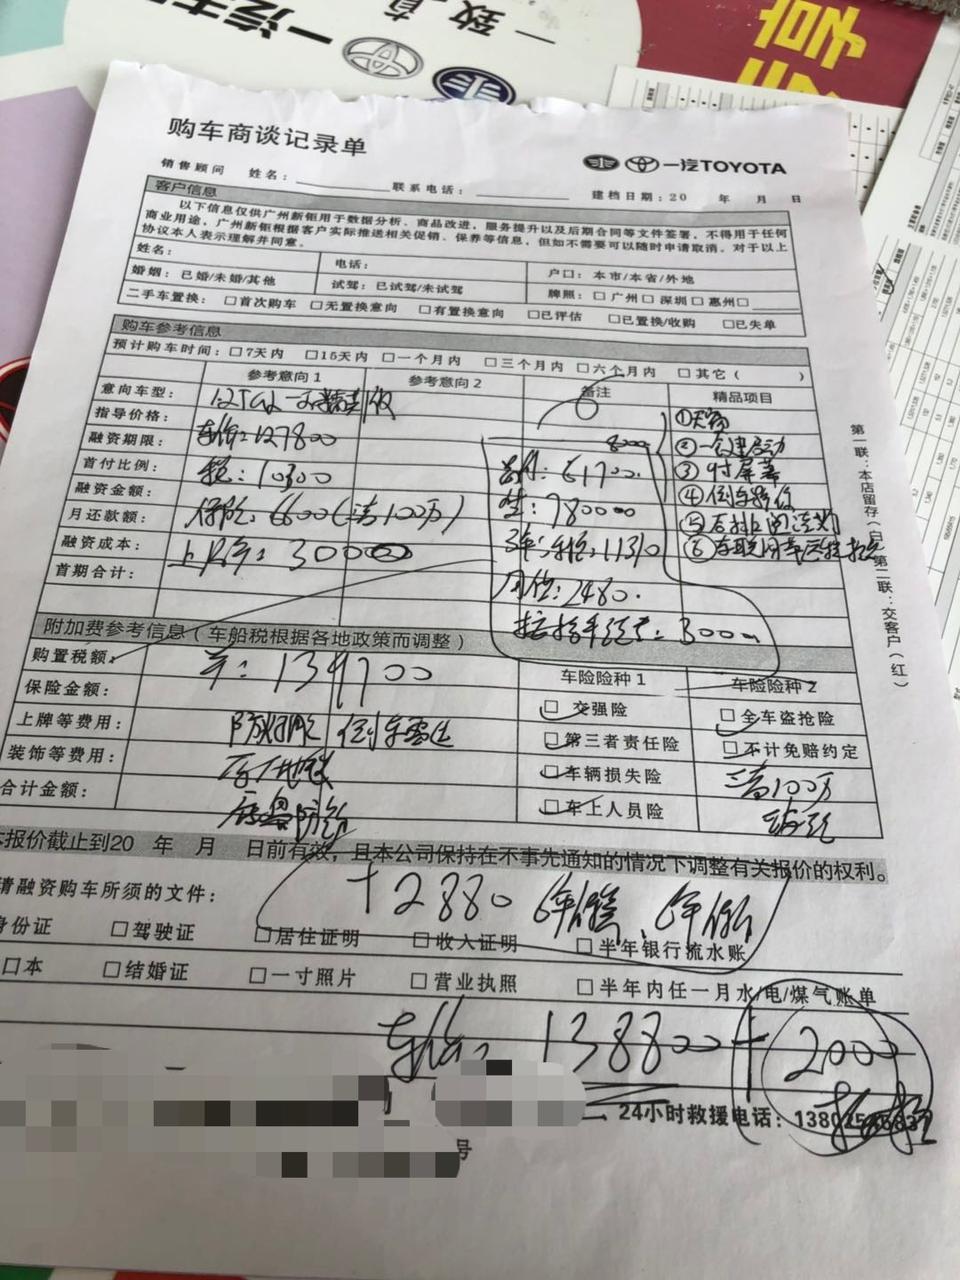 一汽丰
一致
购车商谈记录单
一汽TOYOTA
销售顾问 姓名: 联系电话: 建档日期:20 年 月 日
客户信息
以下信息仅供广州新钜用于数据分析、商品改进,服务提升以及后期合同等文件签署,不得用于任何
商业用途。广州新钜根据客户实际推送相关促销、保养等信息,但如不需要可以随时申请取消。对于以上
协议本人表示理解并同意。
姓名: 电话: 户口:本市/本省/外地
婚姻:已婚/未婚/其他 试驾:已试驾/未试驾 牌照:□广州□深圳□惠州□
二手车置换: □首次购车 □无置换意向 □有置换意向 □已评估 □已置换/收购 □已失单
购车参考信息
预计购车时间:□7天内 □15天内 □一个月内 □三个月内 □六个月内 □其它( )
参考意向1 参考意向2 备注 精品项目
意向车型: 1.2T ①天窗
指导价格: 车价:127800 8000 ②一键启动
融资期限: 税:10300 首付:61700 ③9寸屏幕
首付比例: 保险:6600(三者100万) 贷:78000 ④倒车影像
融资金额: 上户:3000 3年利息:11310 ⑤后排阅读灯
月还款额: 月供:2480 ⑥
融资成本: 按揭手续费:3000
首期合计:
附加费参考信息(车船税根据各地政策而调整)
购置税额: 139700 车险险种1 车险险种2
保险金额: □交强险 □全车盗抢险
上牌等费用: 倒车雷达 □第三者责任险 □不计免赔约定
装饰等费用: □车辆损失险 三者100万
合计金额: □车上人员险
本报价截止到20 年 月 日前有效,且本公司保持在不事先通知的情况下调整有关报价的权利。
请融资购车所须的文件: +2880 6年
身份证 □驾驶证 □居住证明 □收入证明 □半年银行流水账
口本 □结婚证 □一寸照片 □营业执照 □半年内任一月水/电/煤气账单
车价: 138800 + 2000
24小时救援电话:
号
第一联:本店留存(白)第二联:交客户(红)